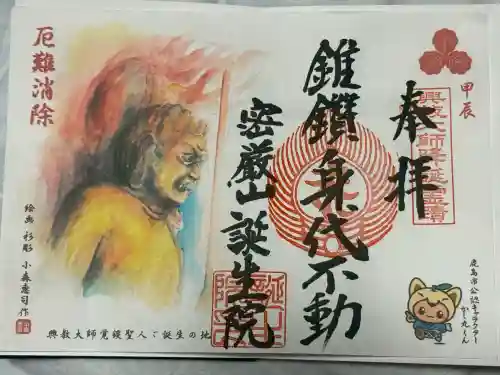 甲辰
奉拝
興教大師降誕霊蹟
錐鑚身代不動
密厳山誕生院
厄難消除
絵画 彩彫 小森惠司 作
興教大師覚鑁聖人ご誕生の地
鹿島市公認キャラクター
かし丸くん